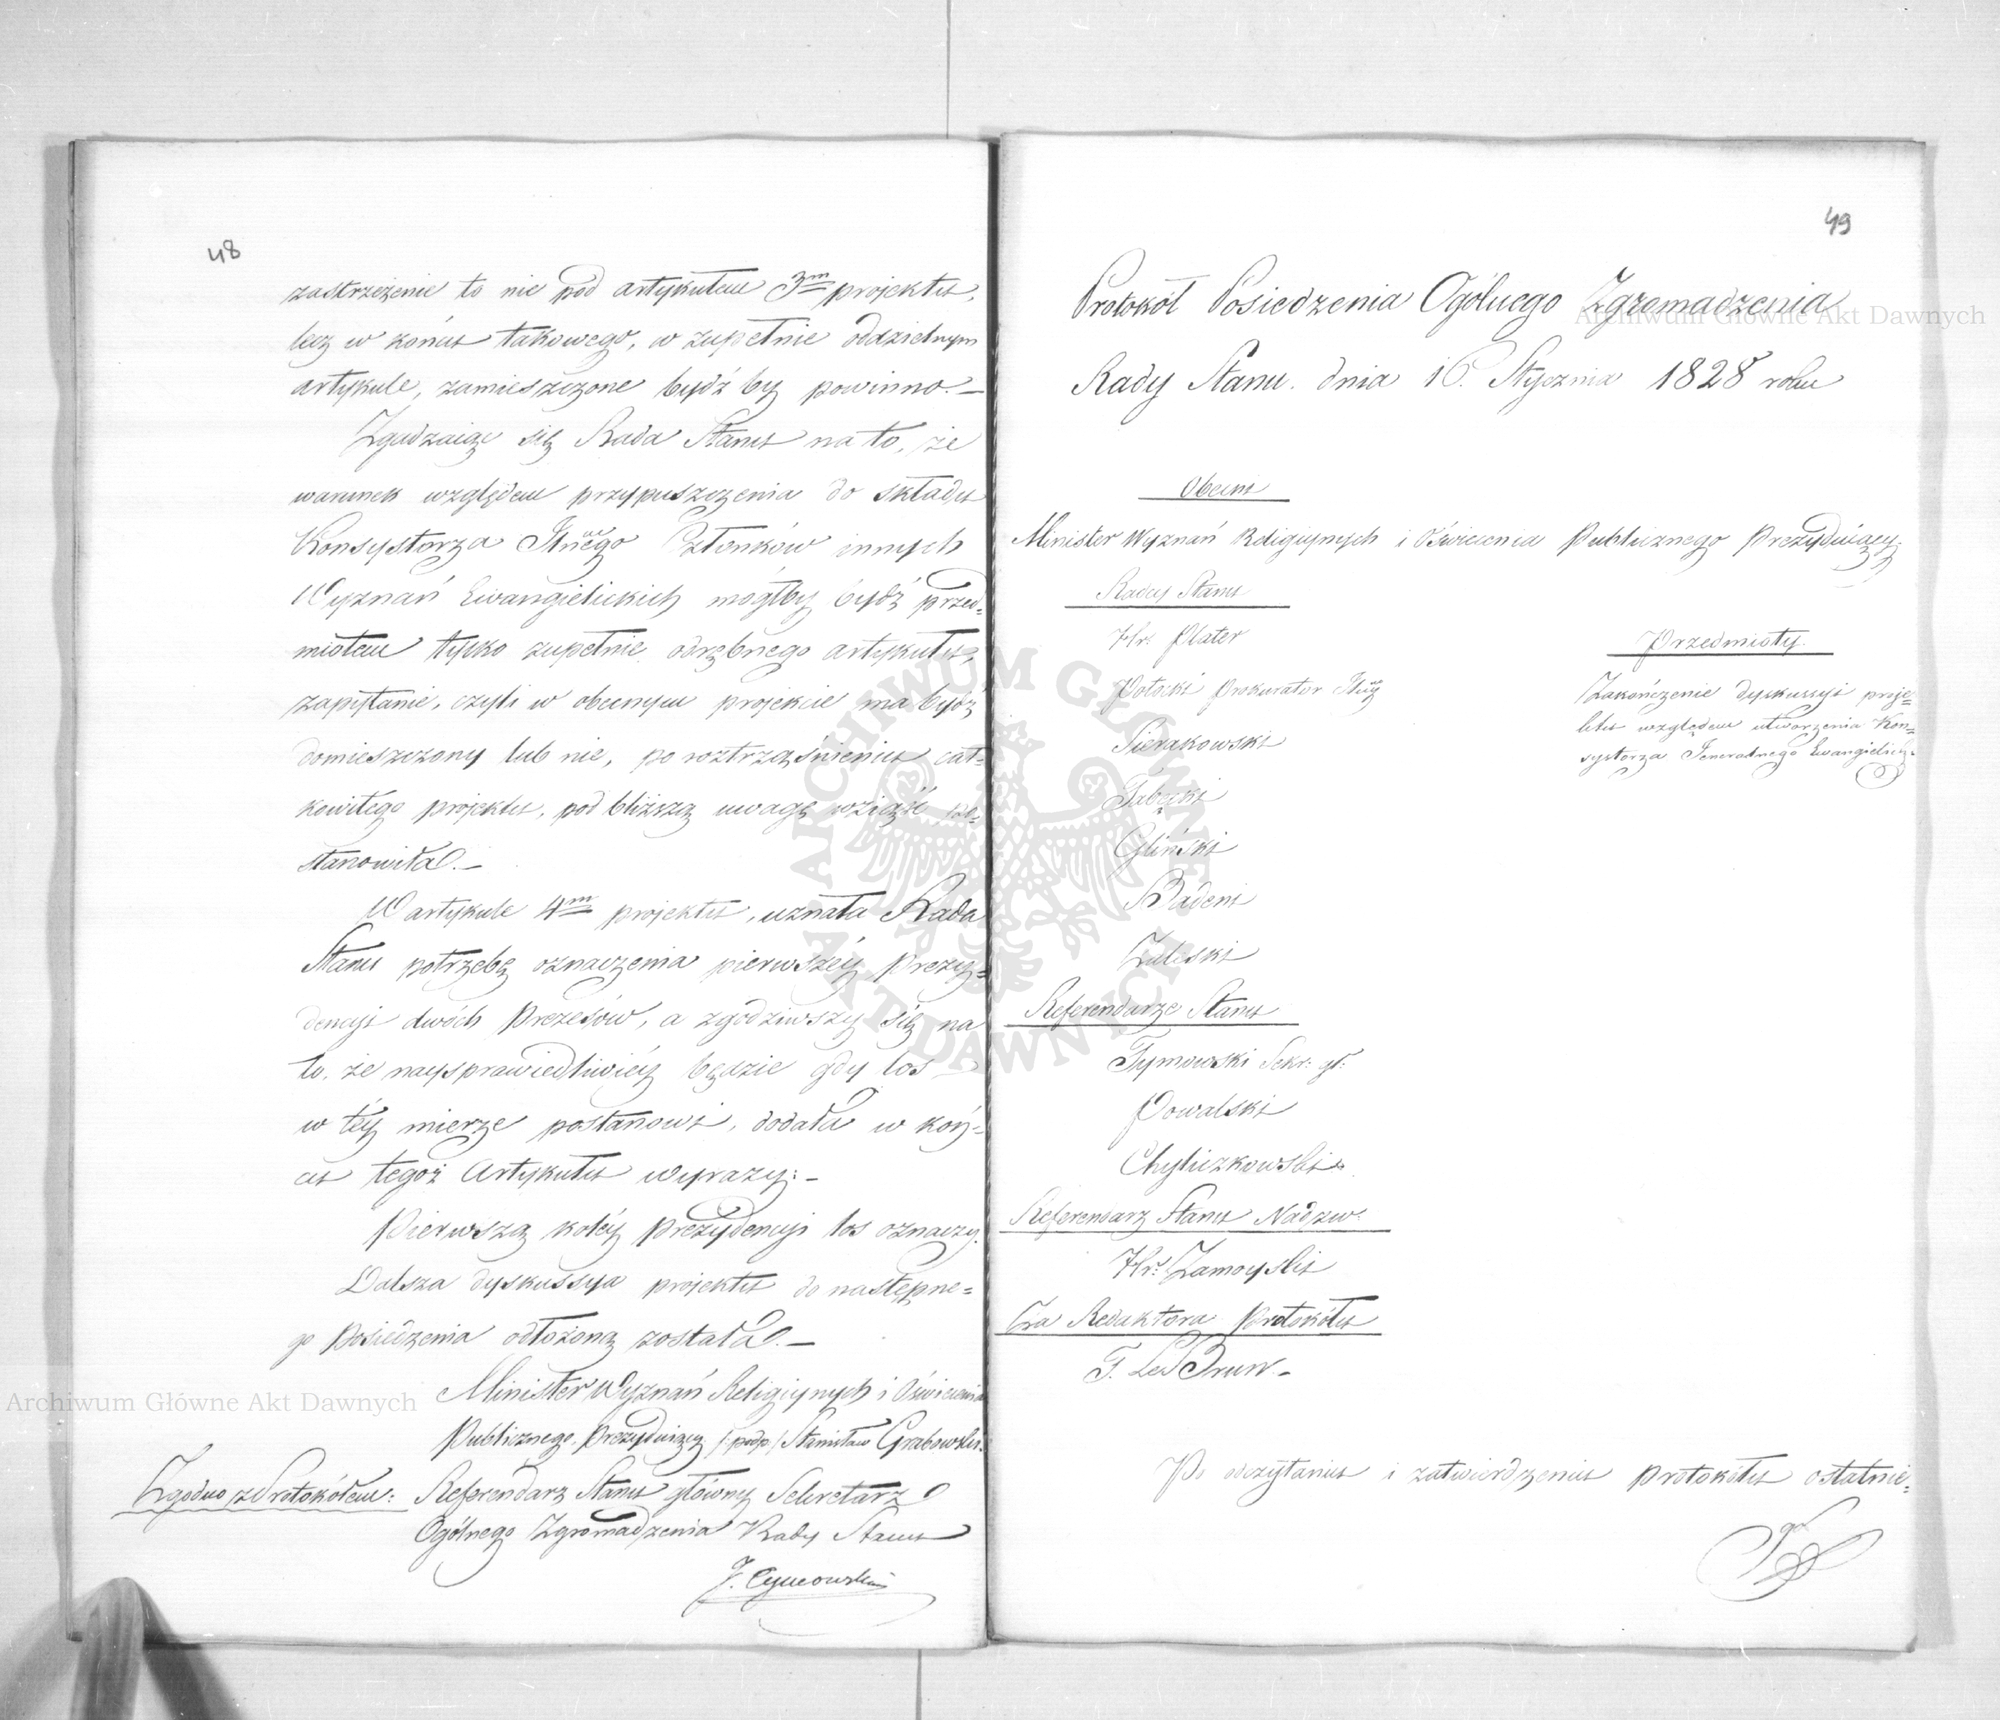 48
zastrzeżenie to nie pod artykułem 3m projektu,
lecz w końcu takowego, w zupełnie oddzielnym
artykule, zamieszczone bydź by powinno.—
Zgadzaiąc się Rada Stanu na to, że
warunek względem przypuszczenia do składu
Konsystorza Członków innych
Wyznań Ewangielickich mógłby bydź przed=
miotem tylko zupełnie odrębnego artykułu,
zapytanie, czyli w obecnym projekcie ma bydź
domieszczony lub nie, po roztrząśnieniu cał=
kowitego projektu, pod bliższą uwagę wziąść po=
stanowiła.—
W artykule 4m projektu, uznała Rada
Stanu potrzebę oznaczenia pierwszéy Prezy=
dencyi dwóch Prezesów, a zgodziwszy się na
to, że naysprawiedliwiéy będzie gdy los —
w téy mierze postanowi, dodała w koń=
cu tegoż Artykułu wyrazy:—
Pierwszą koléy Prezydencyi los oznaczy.
Dalsza dyskussya projektu do następne=
go Posiedzenia odłożoną została.—
Minister Wyznań Religiynych i Oświecenia
Publicznego, Prezyduiący /:podp:/ Stanisław Grabowski.
Zgodno z Protokółem: Referendarz Stanu główny Sekretarz
Ogólnego Zgromadzenia Rady Stanu
J. Tymowski
49
Protokół Posiedzenia Ogólnego Zgromadzenia
Rady Stanu. dnia 16. Stycznia 1828 roku
Obecni
Minister Wyznań Religiynych i Oświecenia Publicznego Prezyduiący.
Radcy Stanu
Hr: Plater
Potocki Prokurator
Sierakowski
Gliński
Badeni
Zaleski
Referendarze Stanu
Tymowski Sekr: gł:
Kowalski
Chyliczkowski
Referendarz Stanu Nadzw:
Hr: Zamoyski
Za Redaktora Protokółu
F. Le Brun.—
Przedmioty.
Zakończenie dyskussyi proje=
ktu względem utworzenia Kon=
systorza Jeneralnego Ewangielick:
Po odczytaniu i zatwierdzeniu Protokółu ostatnie=
go
Archiwum Główne Akt Dawnych
Archiwum Główne Akt Dawnych
ARCHIWUM GŁÓWNE AKT DAWNYCH